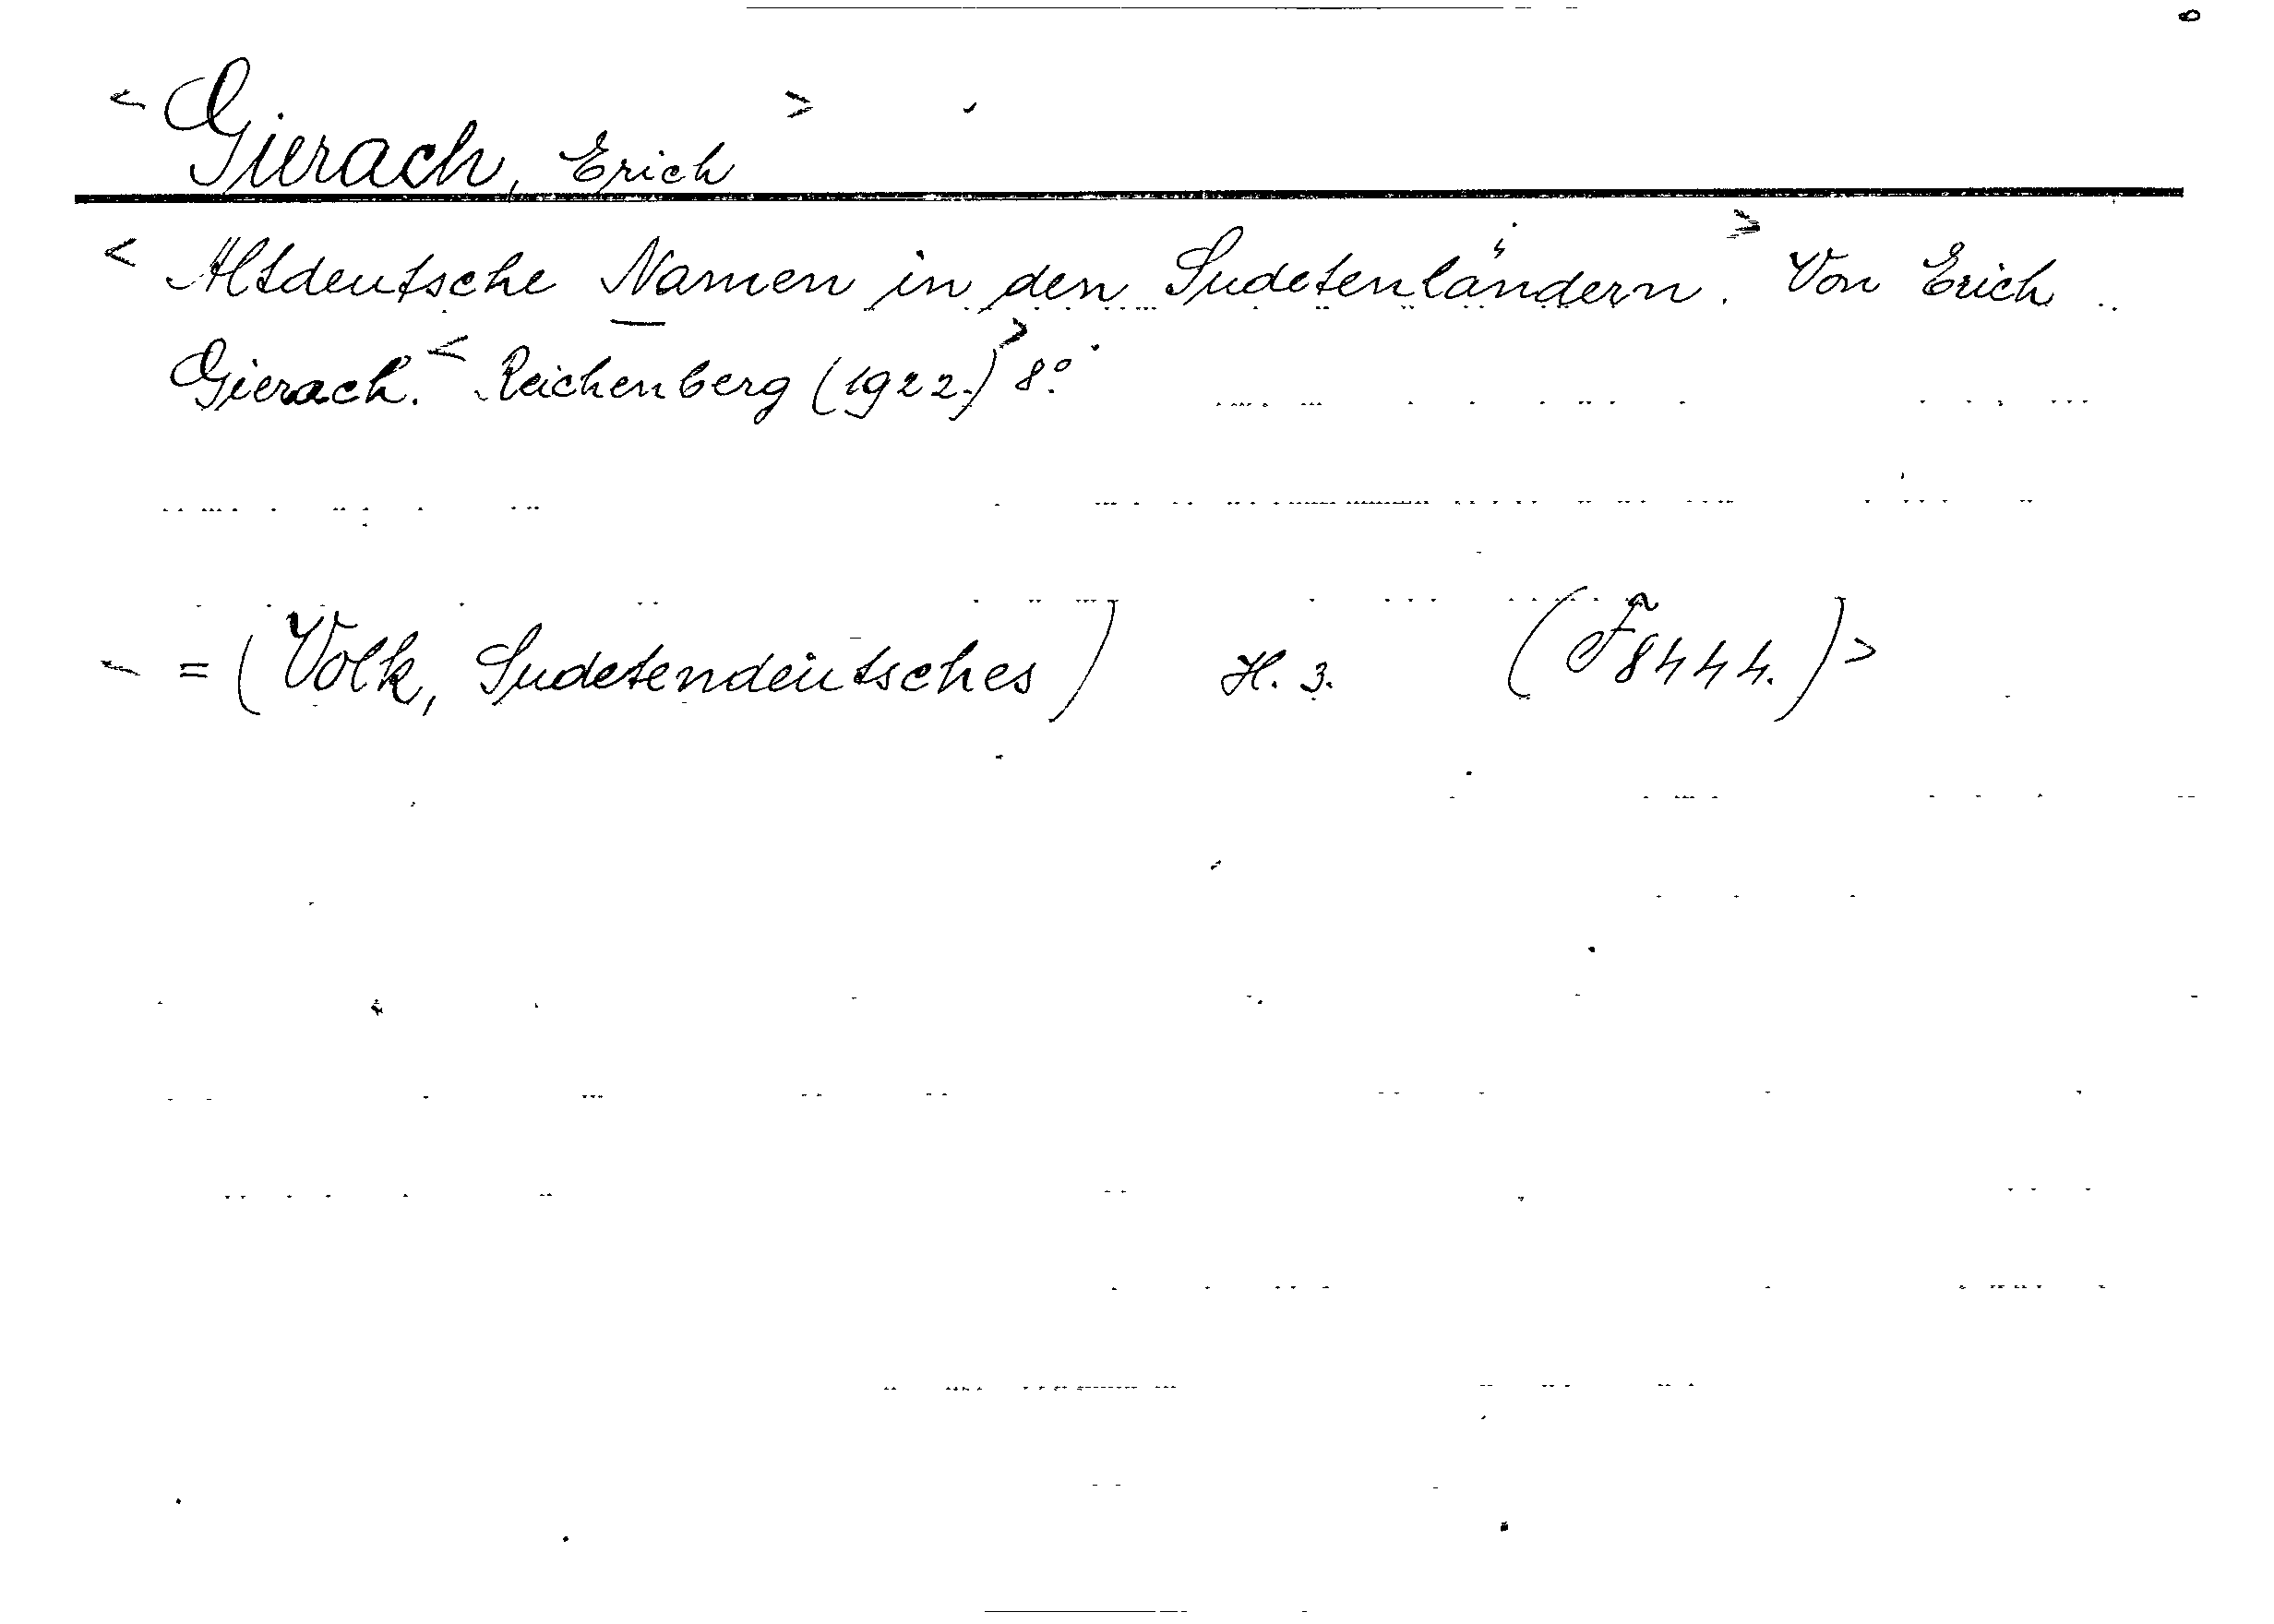 < Gierach, Erich >
< Altdeutsche Namen in den Sudetenländern. > Von Erich
Gierach. < Reichenberg (1922.) > 8°.
< = (Volk, Sudetendeutsches) H. 3. (F̃ 8444.) >